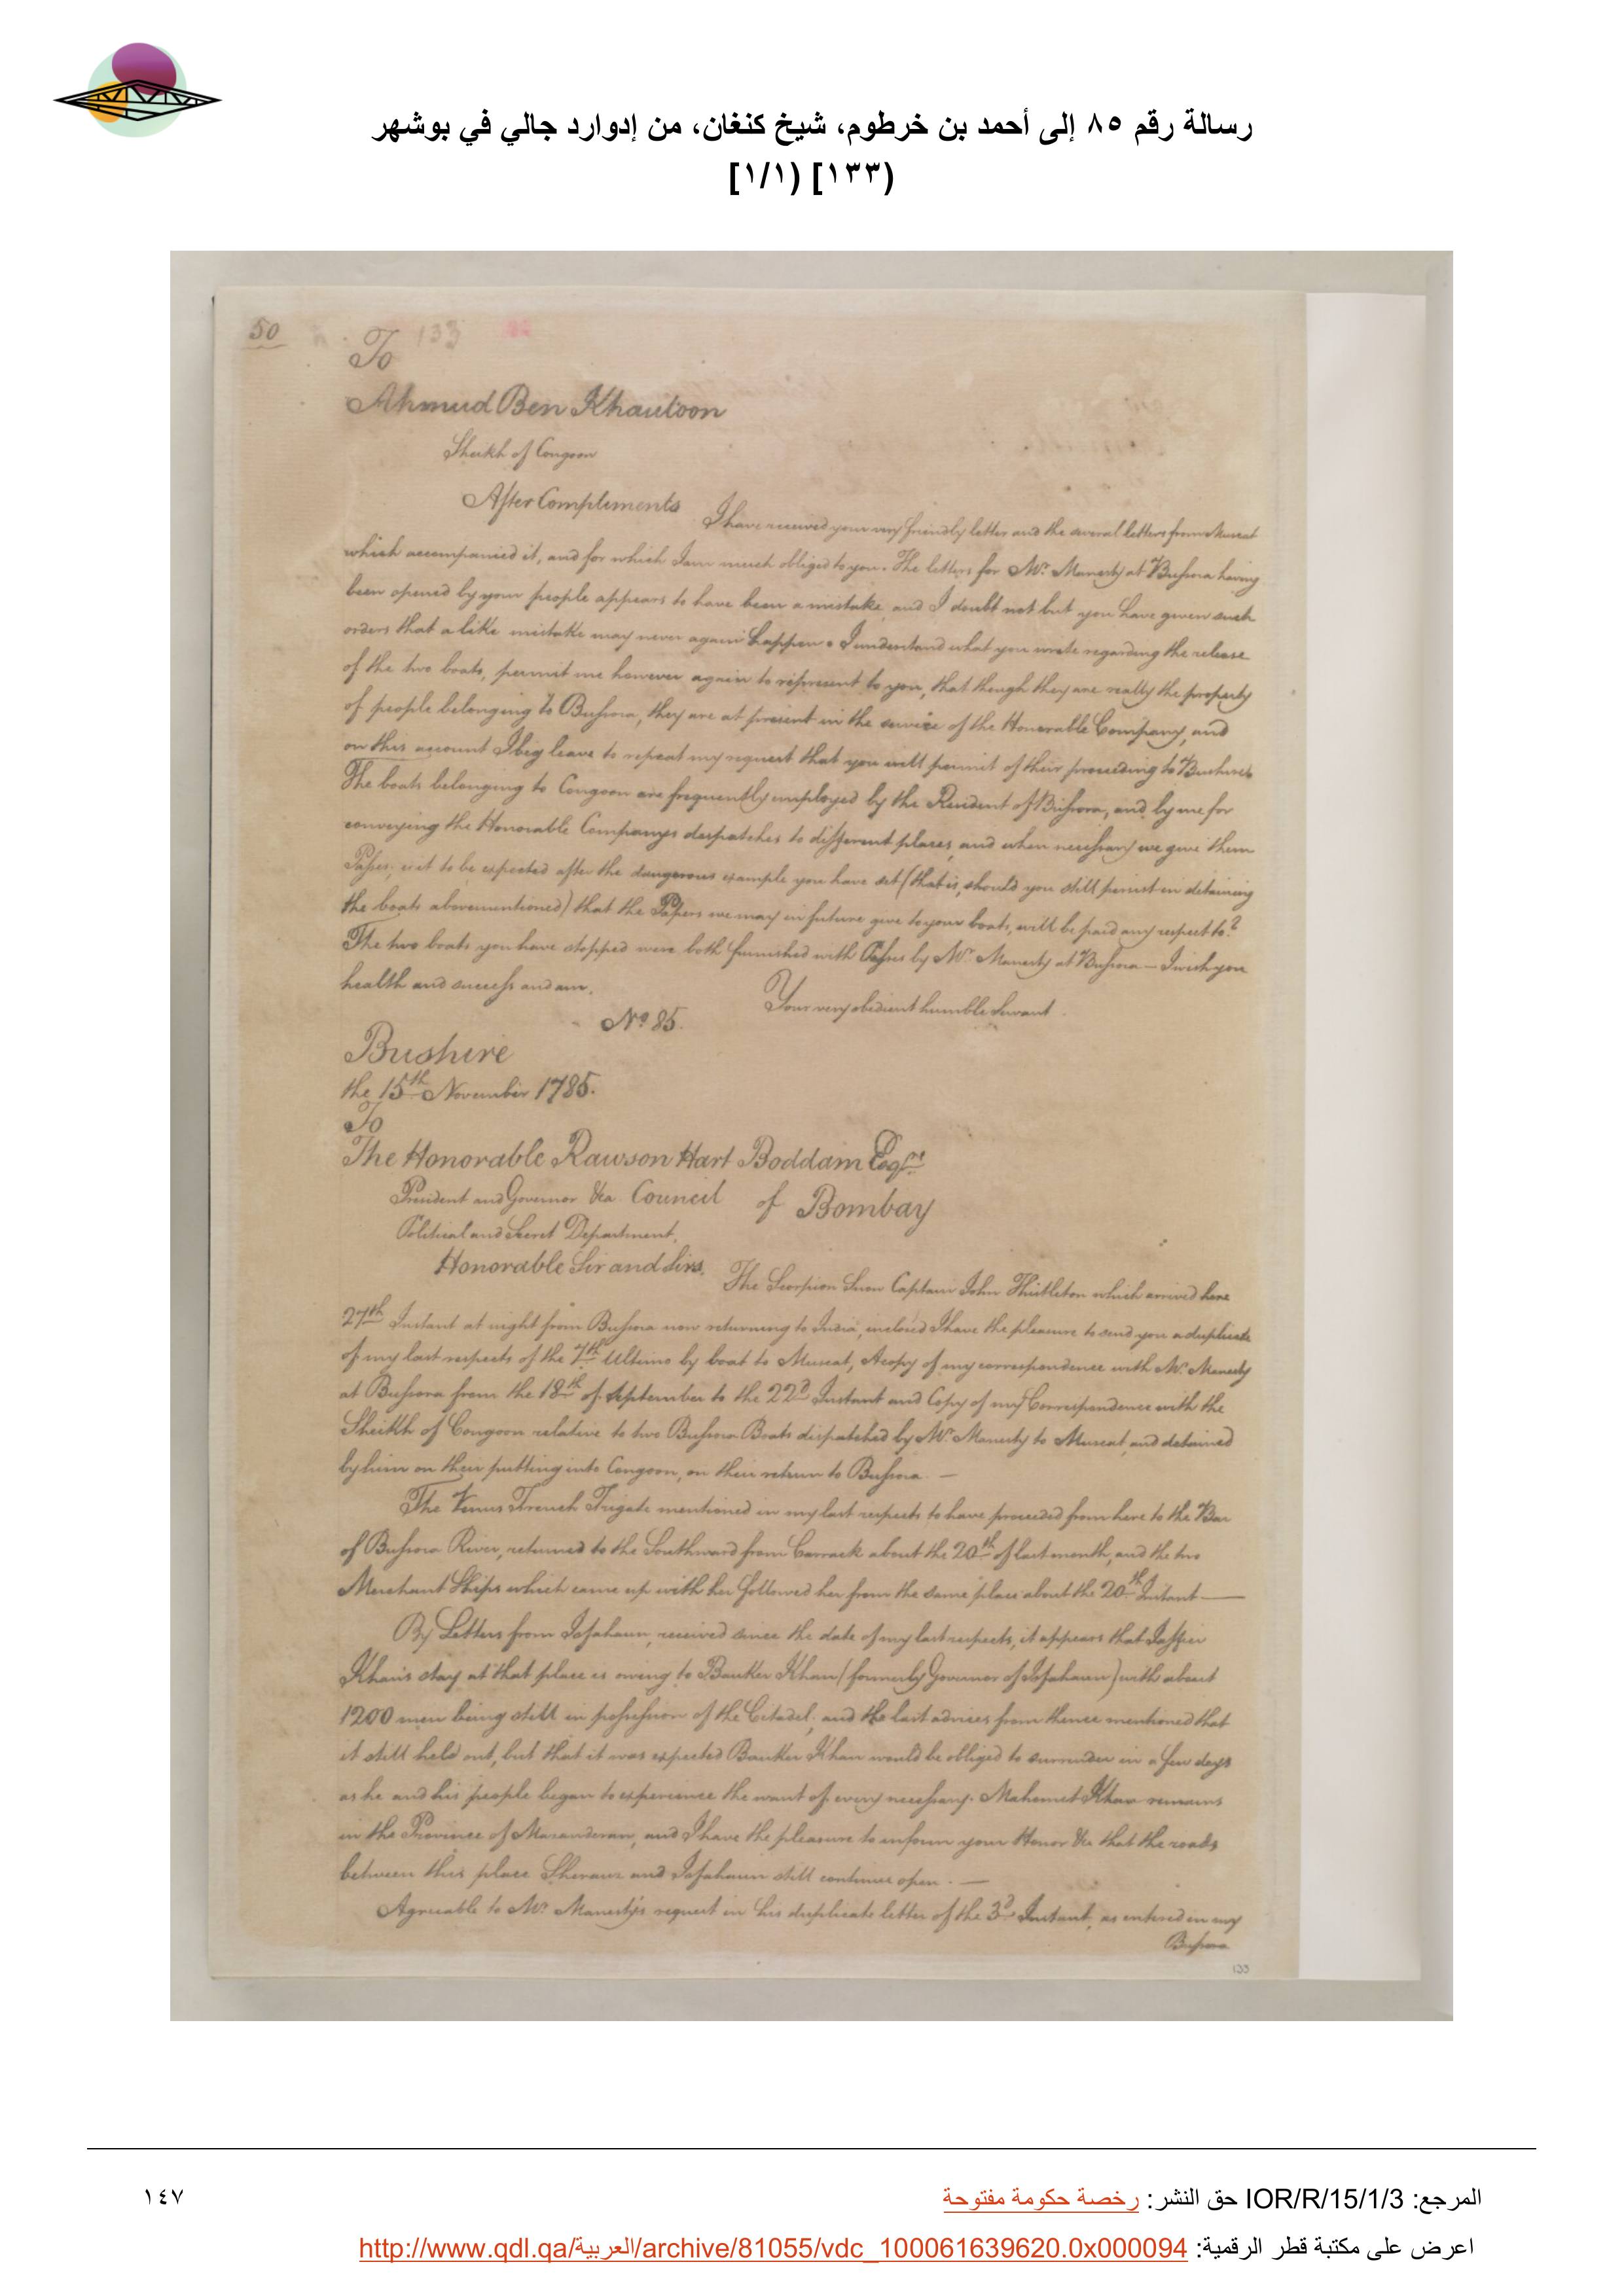 رسالة رقم ٨٥ إلى أحمد بن خرطوم، شيخ كنغان، من إدوارد جالي في بوشهر
[١٣٣] (١/١)
50
133
To
Ahmud Ben Khautoon
Sheikh of Congoon
After Compliments I have received your very friendly letter and the several letters from Muscat
which accompanied it, and for which I am much obliged to you. The letters for Mr. Manesty at Bussora having
been opened by your people appears to have been a mistake, and I doubt not but you have given such
orders that a like mistake may never again happen. I understand what you wrote regarding the release
of the two boats, permit me however again to represent to you, that though they are really the property
of people belonging to Bussora, they are at present in the service of the Honorable Company, and
on this account I beg leave to repeat my request that you will permit of their proceeding to Bushire.
The boats belonging to Congoon are frequently employed by the Resident of Bussora, and by me for
conveying the Honorable Companys despatches to different places, and when necessary we give them
Passes, is it to be expected after the dangerous example you have set (that is, should you still persist in detaining
the boats abovementioned) that the Papers we may in future give to your boats, will be paid any respect to?
The two boats you have stopped were both furnished with Passes by Mr. Manesty at Bussora — I wish you
health and success and am.
Your very obedient humble Servant.
No 85.
Bushire
the 15th November 1785.
To
The Honorable Rawson Hart Boddam Esqr.
President and Governor &ca Council of Bombay
Political and Secret Department.
Honorable Sir and Sirs. The Scorpion Snow Captain John Thistleton which arrived here
27th Instant at night from Bussora now returning to India, inclosed I have the pleasure to send you a duplicate
of my last respects of the 7th Ultimo by boat to Muscat, A copy of my correspondence with Mr. Manesty
at Bussora from the 18th of September to the 22d Instant and Copy of my Correspondence with the
Sheikh of Congoon relative to two Bussora Boats dispatched by Mr. Manesty to Muscat, and detained
by him on their putting into Congoon, on their return to Bussora. —
The Venus French Frigate mentioned in my last respects to have proceeded from here to the Bar
of Bussora River, returned to the Southward from Carrack about the 20th of last month, and the two
Merchant Ships which came up with her followed her from the same place about the 20th Instant —
By Letters from Ispahaun, received since the date of my last respects, it appears that Jaffier
Khan's stay at that place is owing to Bauker Khan (formerly Governor of Ispahaun) with about
1200 men being still in possession of the Citadel; and the last advices from thence mentioned that
it still held out, but that it was expected Bauker Khan would be obliged to surrender in a few days
as he and his people began to experience the want of every necessary. Mahomet Khan remains
in the Province of Mazanderan, and I have the pleasure to inform your Honor &ca that the roads
between this place Sherauz and Ispahaun still continue open. —
Agreeable to Mr. Manesty's request in his duplicate letter of the 3d Instant, as entered in my
Bussora
133
المرجع: IOR/R/15/1/3 حق النشر: رخصة حكومة مفتوحة
١٤٧
اعرض على مكتبة قطر الرقمية: http://www.qdl.qa/العربية/archive/81055/vdc_100061639620.0x000094